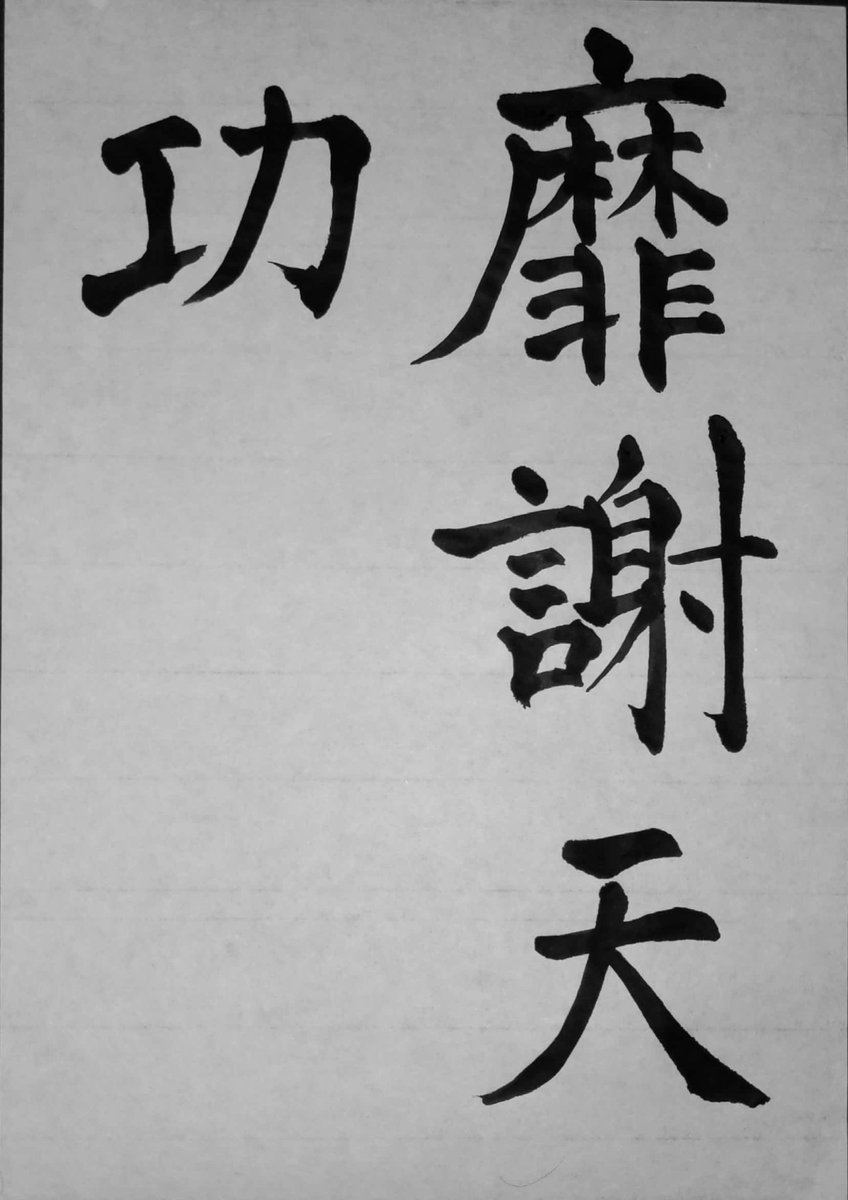 靡謝天
功